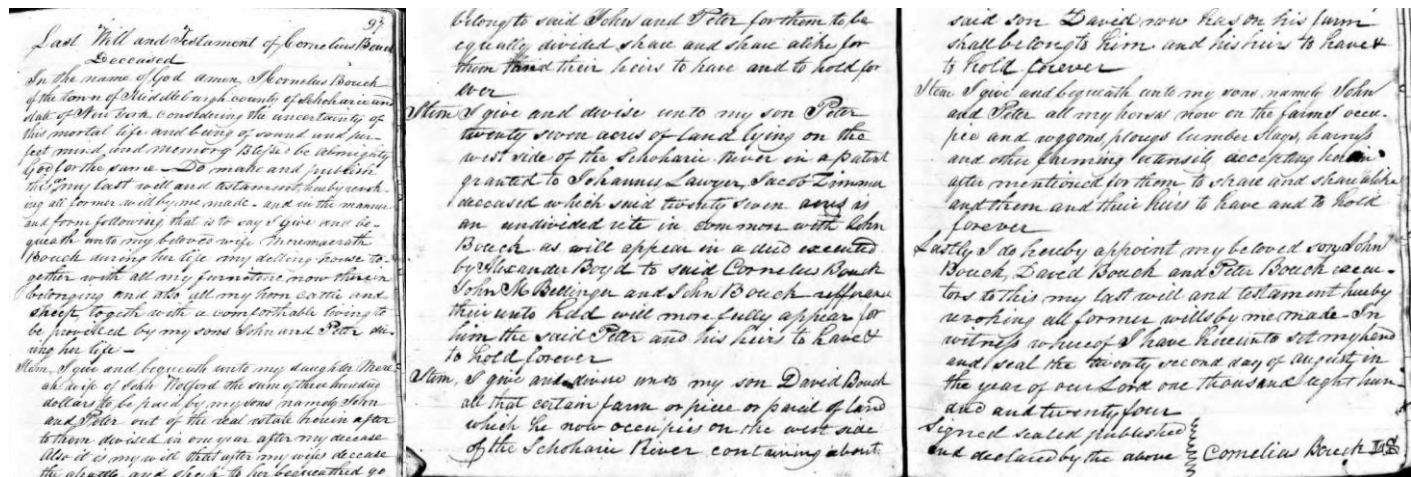 93
Last Will and Testament of Cornelius Bouck
Deceased
In the name of God amen I Cornelius Bouck
of the town of Middleburgh county of Schoharie and
state of New York considering the uncertainty of
this mortal life and being of sound and per-
fect mind and memory Blessed be almighty
God for the same - Do make and publish
this my last will and testament, hereby revok-
ing all former will by me made - and in the manner
and form following that is to say I give and be-
queath unto my beloved wife
Bouck during her life my delling house to-
gether with all my furniture now therein
belonging and also all my horn cattle and
sheep, togeth with a comfortable living to
be provided by my sons John and Peter du-
ring her life -
Item I give and bequeath unto my daughter
wife of John the sum of three hundred
dollars to be paid by my sons namely John
and Peter out of the real estate herein after
to them devised in one year after my decease
Also it is my will that after my wifes decease
the chattle and sheep to her bequeathed go
belong to said John and Peter for them to be
equally divided share and share alike for
them and their heirs to have and to hold for
ever
Item I give and devise unto my son Peter
twenty seven acres of land lying on the
west side of the Schoharie River in a patent
granted to Johannes Lawyer, Jacob Zimmer
deceased which said twenty seven acres is
an undivided rite in common with John
Bouck as will appear in a deed executed
by Alexander Boyd to said Cornelius Bouck
John M Bellinger and John Bouck refferance
their unto had will more fully appear for
him the said Peter and his heirs to have &
to hold forever
Item, I give and devise unto my son David Bouck
all that certain farm or piece or parcel of land
which he now occupies on the west side
of the Schoharie River containing about
said son David now has on his farm
shall belong to him and his heirs to have &
to hold forever
Item I give and bequeath unto my sons, namely John
and Peter all my horses now on the farms occu-
pie and waggons, plougs lumber slays, harness
and other farming utensils, accepting herein
after mentioned for them to share and share alike
and them and their heirs to have and to hold
forever
Lastly I do hereby appoint my beloved son John
Bouck, David Bouck and Peter Bouck execu-
tors to this my last will and testament hereby
revoking all former wills by me made - In
witness whereof I have hereunto set my hand
and seal the twenty second day of august in
the year of our Lord one thousand eight hun-
dred and twenty four
Signed sealed published
and declared by the above Cornelius Bouck LS